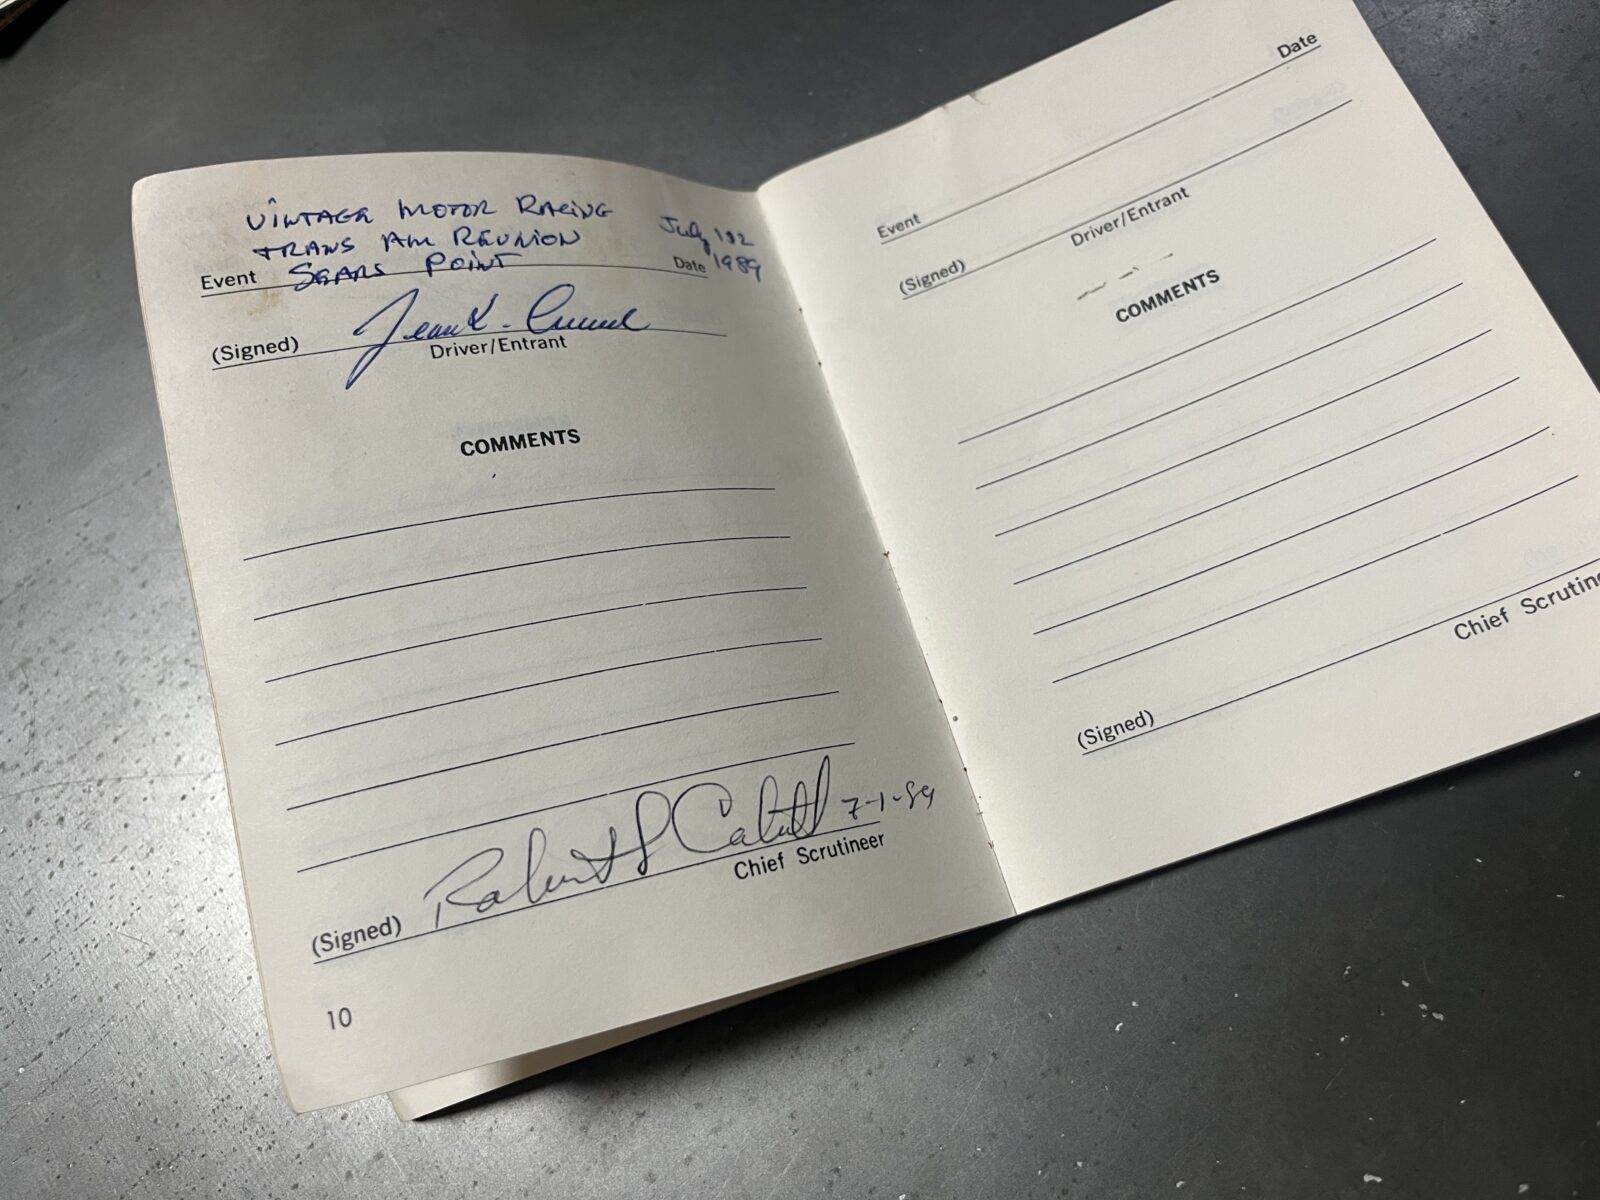 VINTAGE MOTOR RACING
TRANS AM REUNION
Event SEARS POINT
July 1&2
Date 1989
(Signed)
Driver/Entrant
COMMENTS
(Signed) Robert S 7-1-89
Chief Scrutineer
10
Date
Event
(Signed)
Driver/Entrant
COMMENTS
(Signed)
Chief